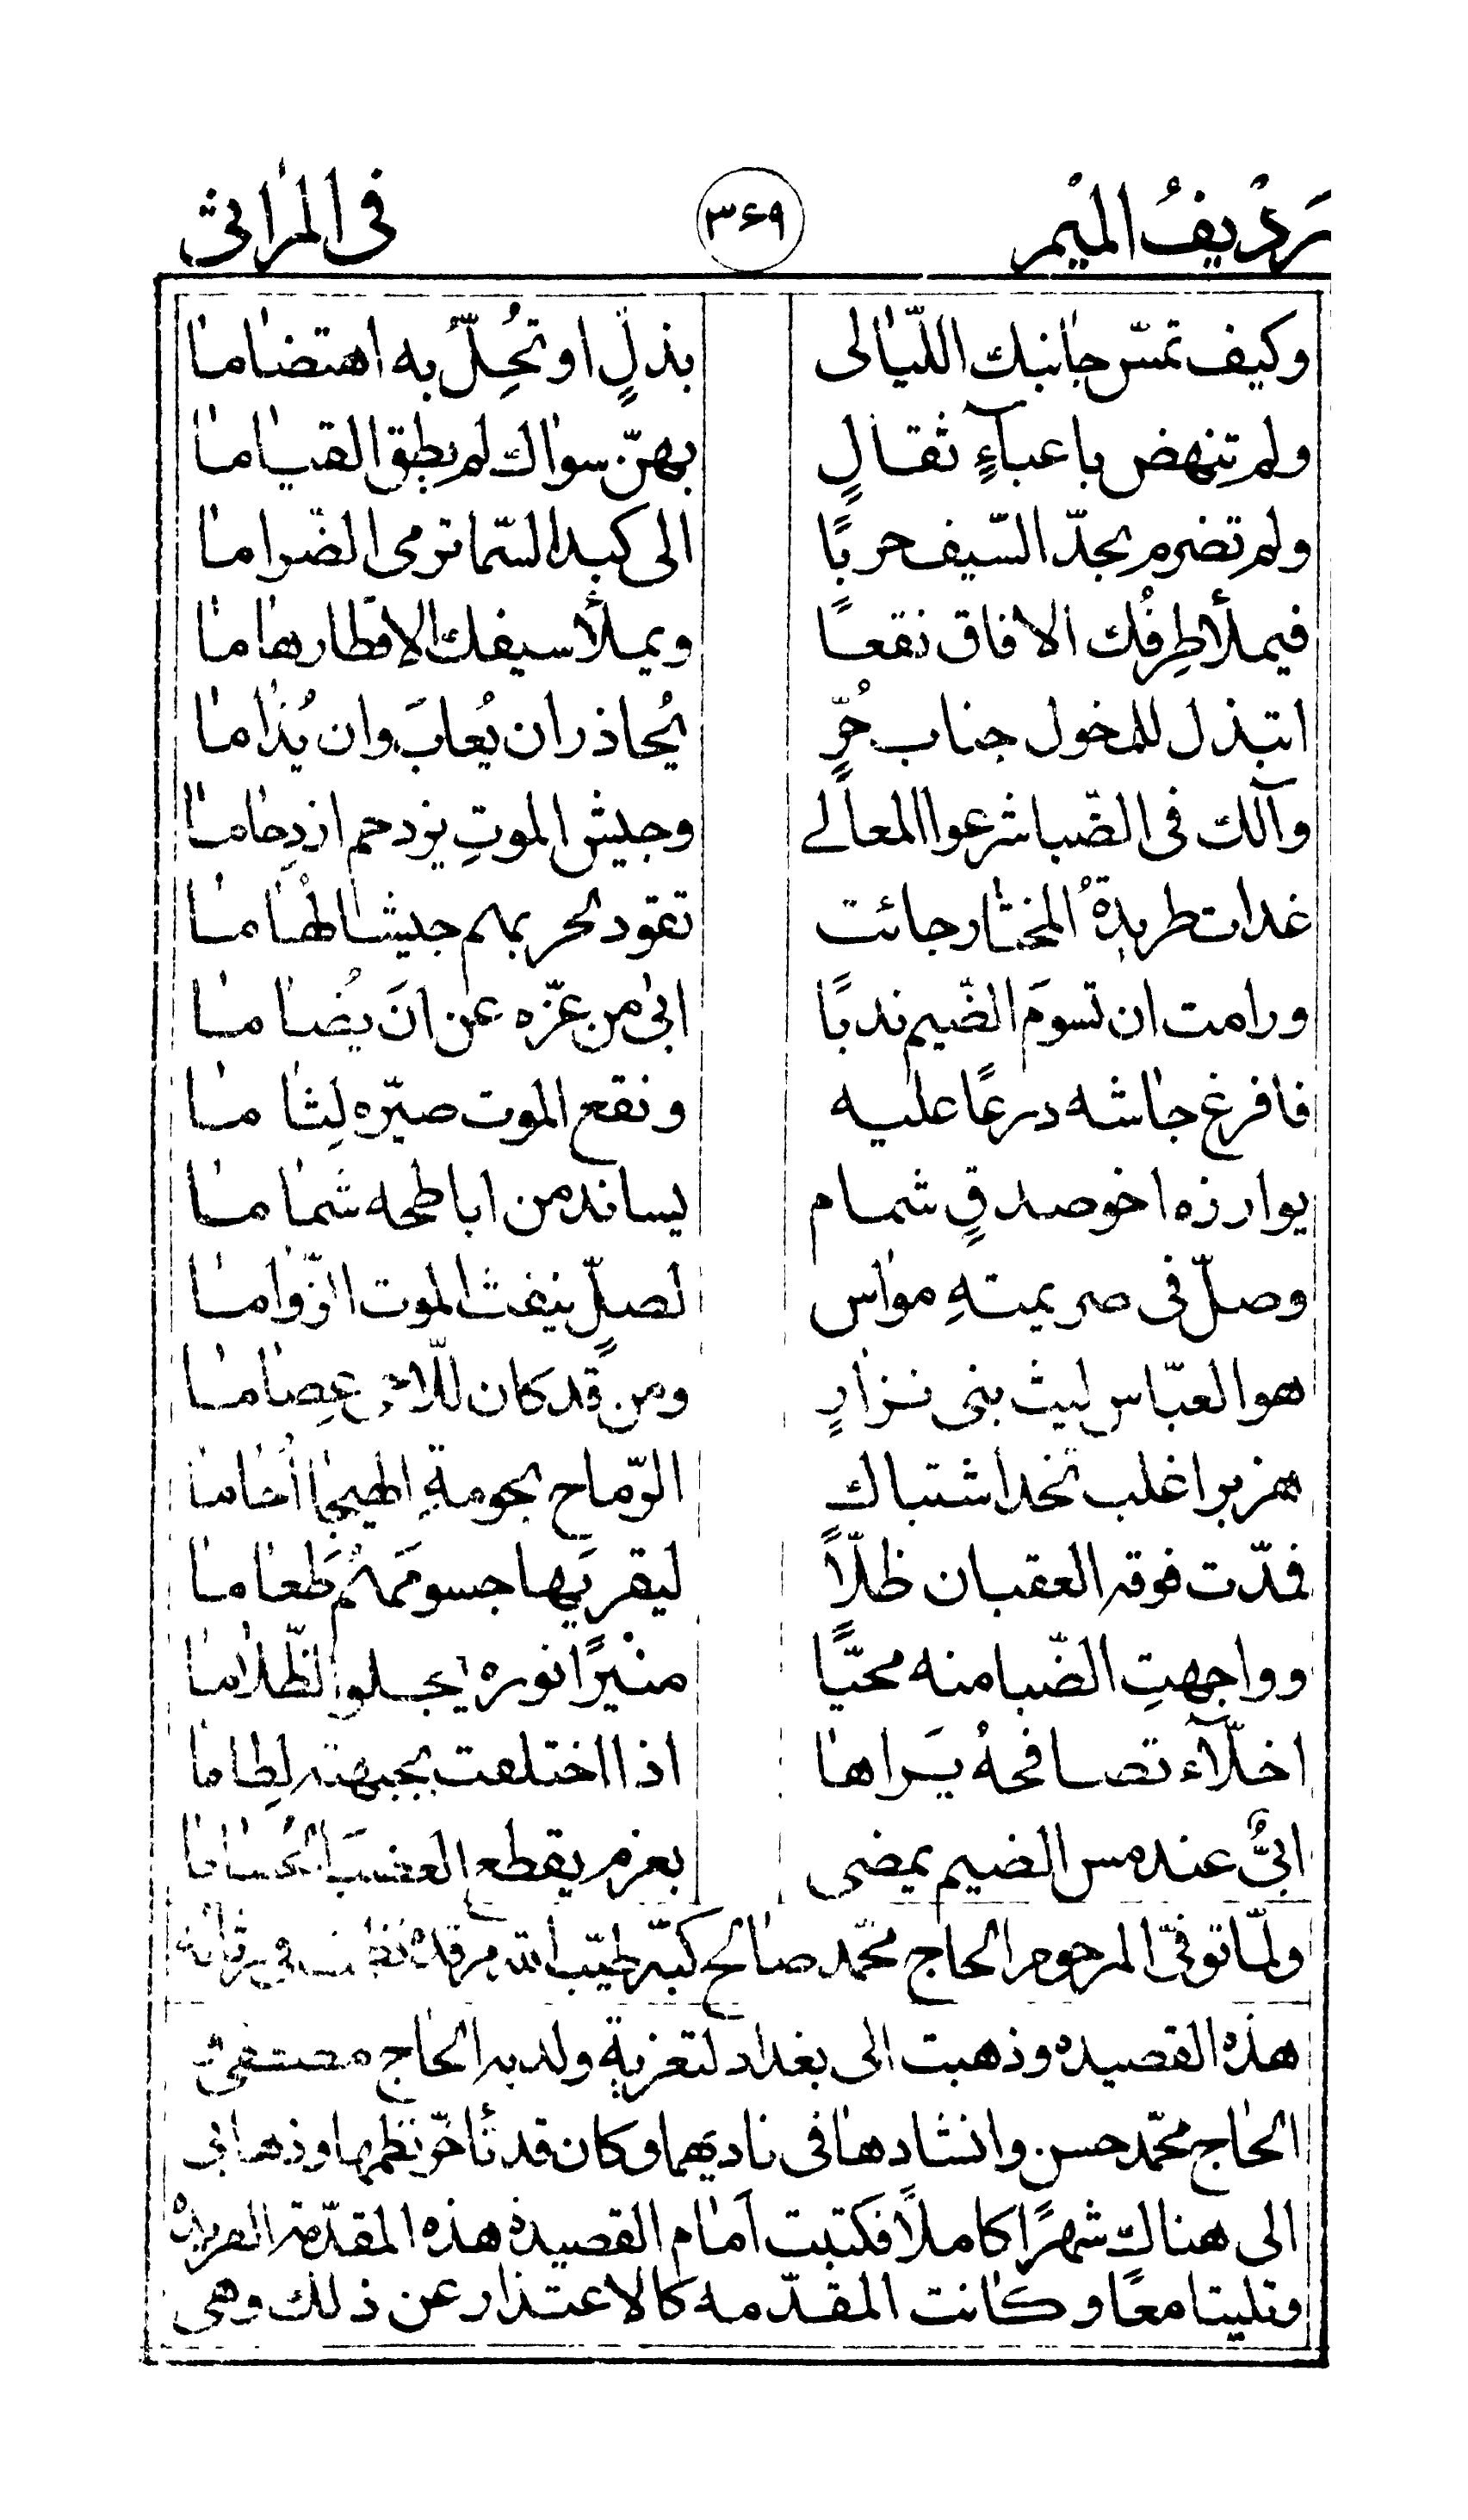 رَدْيفُ الميْم ٣۶٩ فى المراثى
وكيف تمسّ جانبك اللّيالى بذلٍ او تُحِلّ به اهتضاما
ولم تنهض باعبآءٍ ثقالٍ بهنّ سواك لم يطق القياما
ولم تضرم بحدّ السّيف حربًا الى كبد السّما ترمى الضّراما
فيملأ طِرفُك الافاق نقعًا ويملأ سيفك الاقطار هاما
اتبذل للخول جناب حُرٍّ يُحاذر ان يُعابَ وان يُذاما
وآلك فى الضّبا شرعوا المعالے وجيش الموتِ يزدحم ازدِحاما
غدات طريدةُ المختار جائت تقود لحربهم جيشا لهُاما
ورامت ان تسومَ الضّيم ندبًا ابىٰ من عزّه عن انَ يُضاما
فافرغ جاشه درعًا عليه ونقع الموت صيّره لِثاما
يوارزه اخو صدقٍ شمام يساند من اباطحه شماما
وصلّ فى صريمتهِ مواس لصلٍّ ينفث الموت الزّواما
هو العبّاس ليث بنى نزارٍ ومن قد كان للّاجى عِصاما
هزبر اغلب تخد اشتباك الرّماح بحومةِ الهيجا اُجاما
فمدّت فوقه العقبان ظلّاً ليقريَها جسومَهُم طَعاما
وواجهتِ الضّبا منه محيّا منيرًا نوره يجلو الظّلاما
اخلّآء تصافحهُ يَراها اذا اختلفت بجبهته لِطاما
ابىُّ عند مس الضيم يمضى بعزم يقطع العضبَ الحُساما
ولمّا توفّى المرحوم الحاج محّمد صالح كبّه طيّب الله مرقده نظمت فى رثائه
هذه القصيده وذهبت الى بغداد لتعزيةٍ ولديه الحاج مصطفى
الحاج محّمد حسن وانشادها فى ناديهما وكان قد تأخّر نظمها وذهابى
الى هناك شهرًا كاملًا فكتبت اَمام القصيدة هذه المقدّمة الفريدة
وتليتا معًا وكانت المقدّمه كالاعتذار عن ذلك وهى